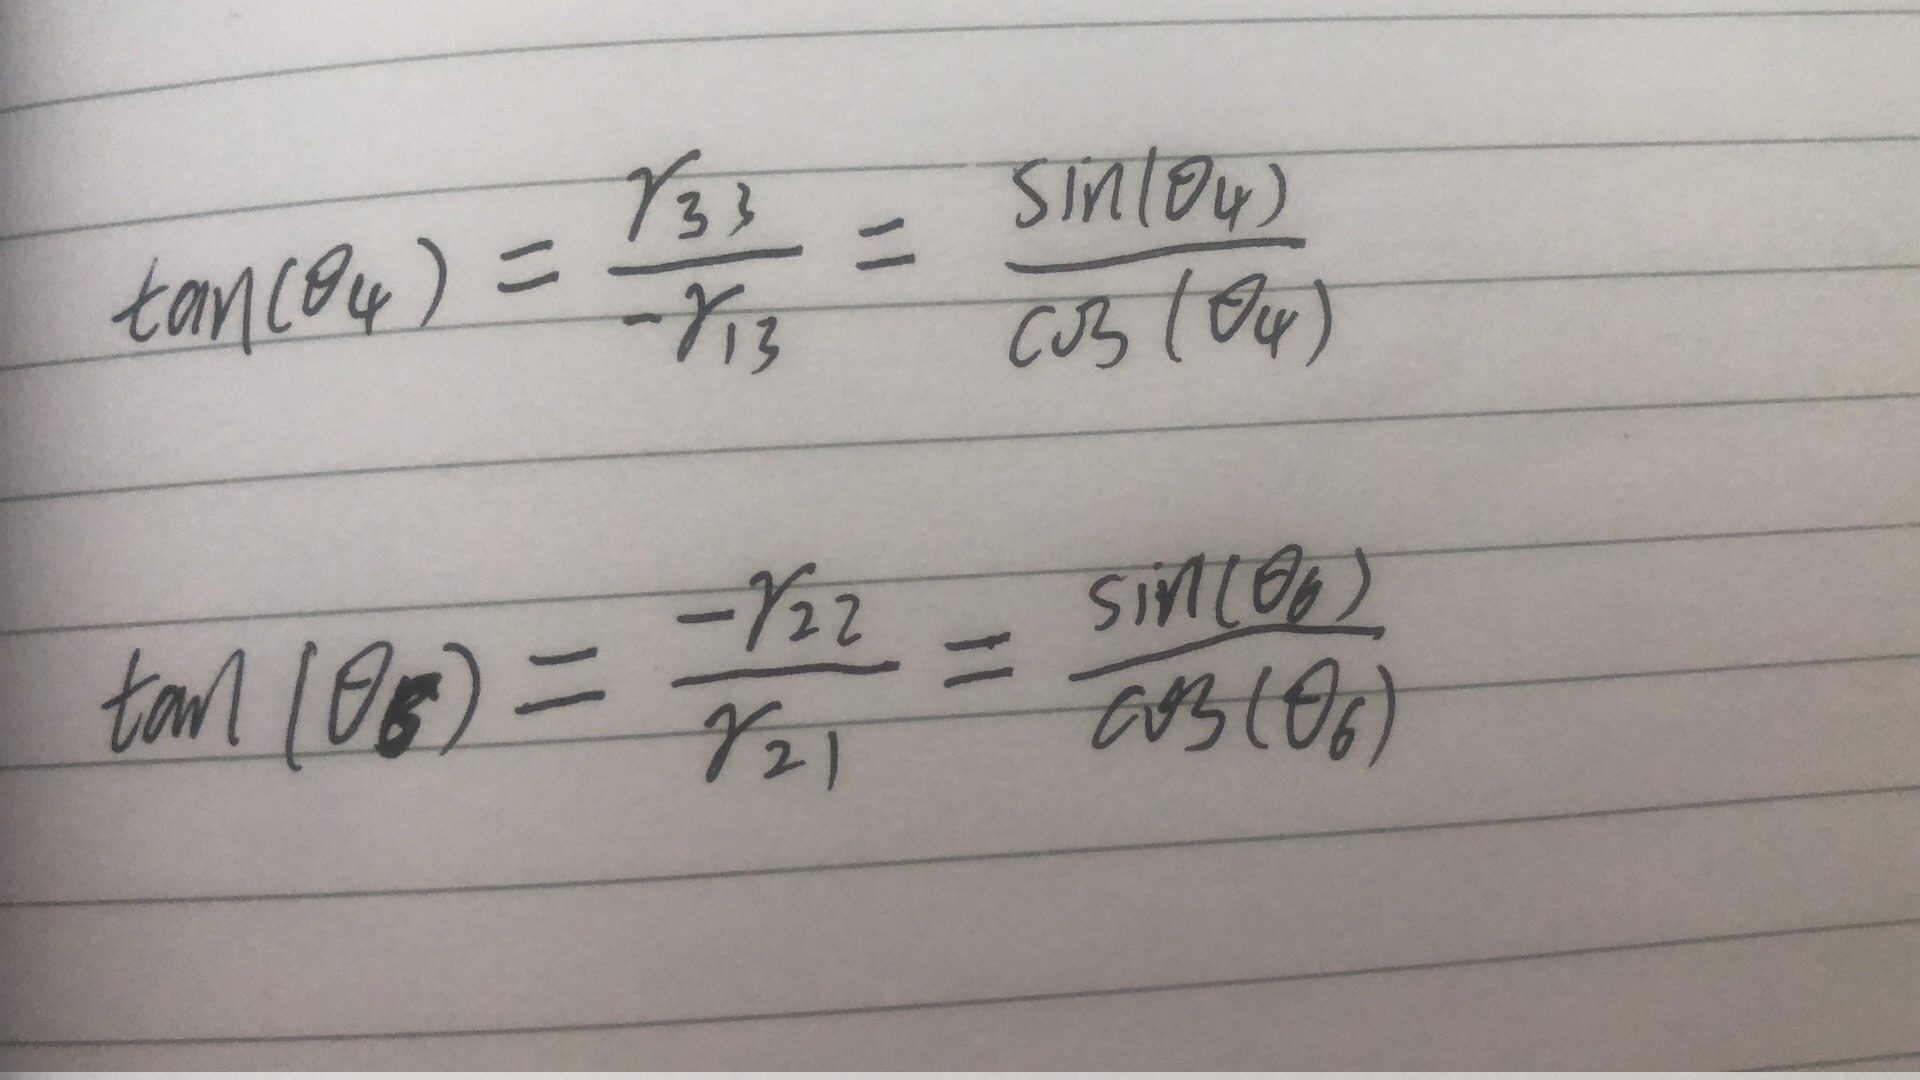 tan(θ₄) = r₃₃ / -r₁₃ = sin(θ₄) / cos(θ₄)
tan(θ₆) = -r₂₂ / r₂₁ = sin(θ₆) / cos(θ₆)